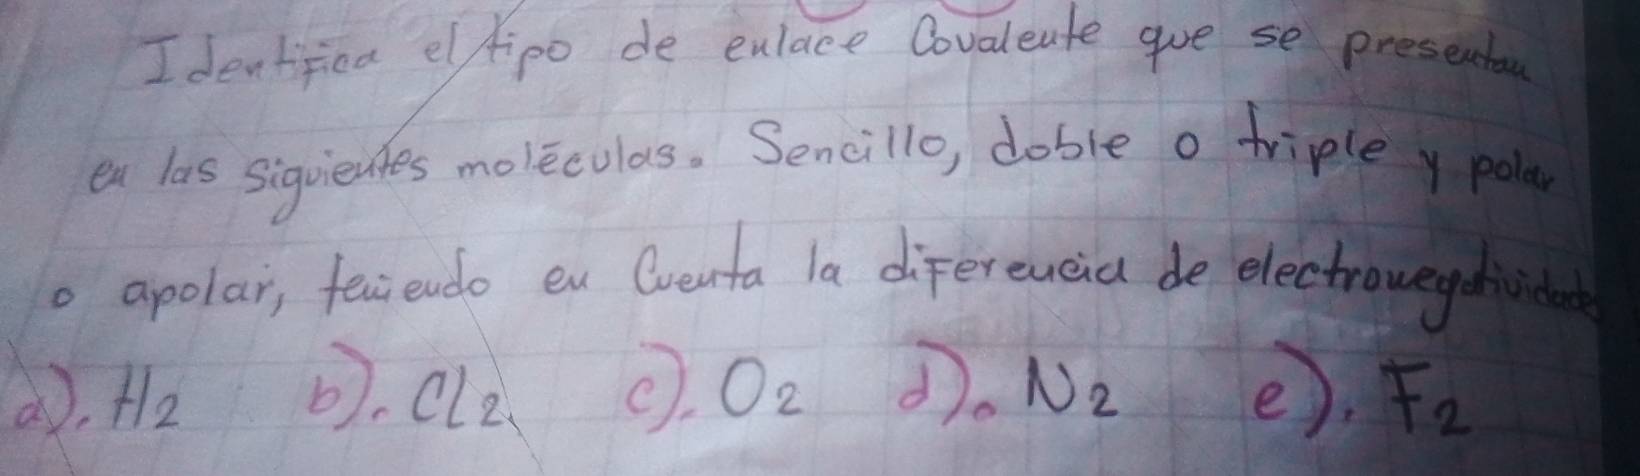 Identifica el tipo de enlace Covalente que se presentan
en las siguientes moléculas. Sencillo, doble o triple y polar
o apolar, teniendo en Cuenta la diferencia de electronegatividades
a). H2 b). Cl2 c). O2 d). N2 e). F2